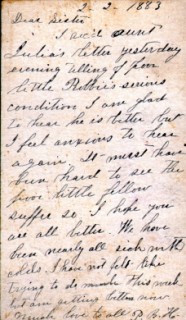 2-2-1883
Dear Sister
I rec'd aunt
Julia's letter yesterday
evening telling of poor
little Robbie's serious
condition I am glad
to hear he is better but
I feel anxious to hear
again. It must have
been hard to see the
poor little fellow
suffer so, I hope you
are all better. We have
been nearly all sick with
colds. I have not felt like
trying to do much this week
but am getting better now
love to all